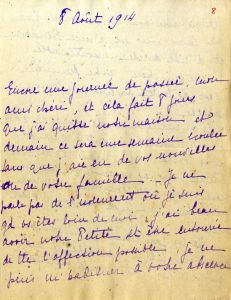 8 Août 1914
8
Encore une journée de passée, mon
ami chéri, et cela fait 8 jours
que j'ai quitté notre maison et
demain ce sera une semaine écoulée
sans que j'aie eu de vos nouvelles
ou de votre famille. Je ne
parle pas de l'isolement où je suis
qd vs êtes loin de moi, j'ai beau
avoir notre Petite et être entourée
de tte l'affection possible je ne
puis m'habituer à votre absence